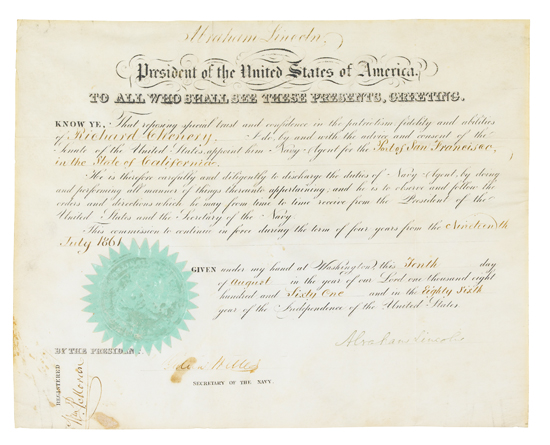 Abraham Lincoln,
President of the United States of America.
TO ALL WHO SHALL SEE THESE PRESENTS, GREETING.
KNOW YE, That reposing special trust and confidence in the patriotism fidelity and abilities
of Richard Chenery, I do by and with the advice and consent of the
Senate of the United States, appoint him Navy Agent for the Port of San Francisco,
in the State of California.
He is therefore carefully and diligently to discharge the duties of Navy Agent by doing
and performing all manner of things thereunto appertaining; and he is to observe and follow the
orders and directions which he may from time to time receive from the President of the
United States and the Secretary of the Navy
This commission to continue in force during the term of four years from the Nineteenth
July 1861
GIVEN under my hand at Washington, this Tenth day
of August in the year of our Lord one thousand eight
hundred and Sixty One and in the Eighty Sixth
year of the Independence of the United States
Abraham Lincoln
BY THE PRESIDENT.
Welles
SECRETARY OF THE NAVY.
REGISTERED